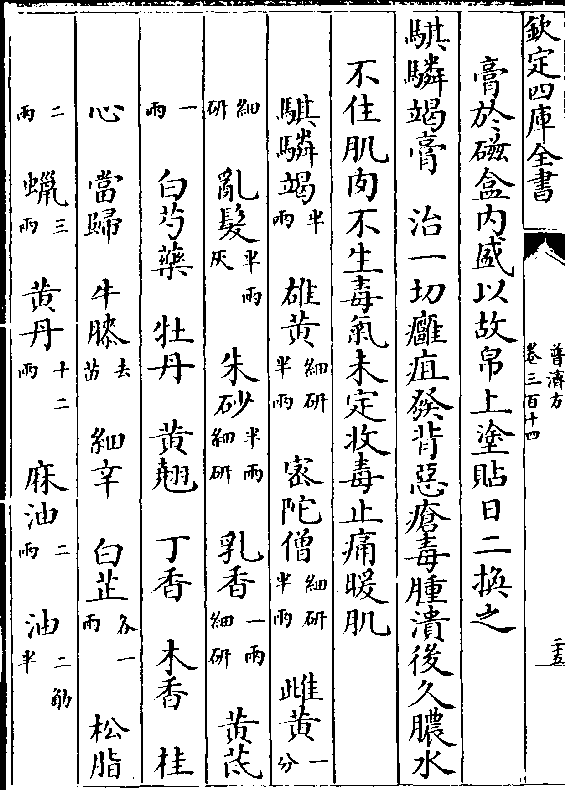 欽定四庫全書
普濟方
卷三百十四
二十五
膏於磁盒内盛以故帛上塗貼日二換之
騏驎竭膏　治一切癰疽發背惡瘡毒腫潰後久膿水
不住肌肉不生毒氣未定收毒止痛暖肌
騏驎竭半兩　雄黄細研半兩　宻陀僧細研半兩　雌黄一分
細研　亂髮半兩灰　朱砂半兩細研　乳香一兩細研　黄芪
一兩　白芍藥　牡丹　黄翹　丁香　木香　桂
心　當歸　牛膝去苖　細辛　白芷各一兩　松脂
二兩　蠟三兩　黄丹十二兩　麻油二兩　油二觔半